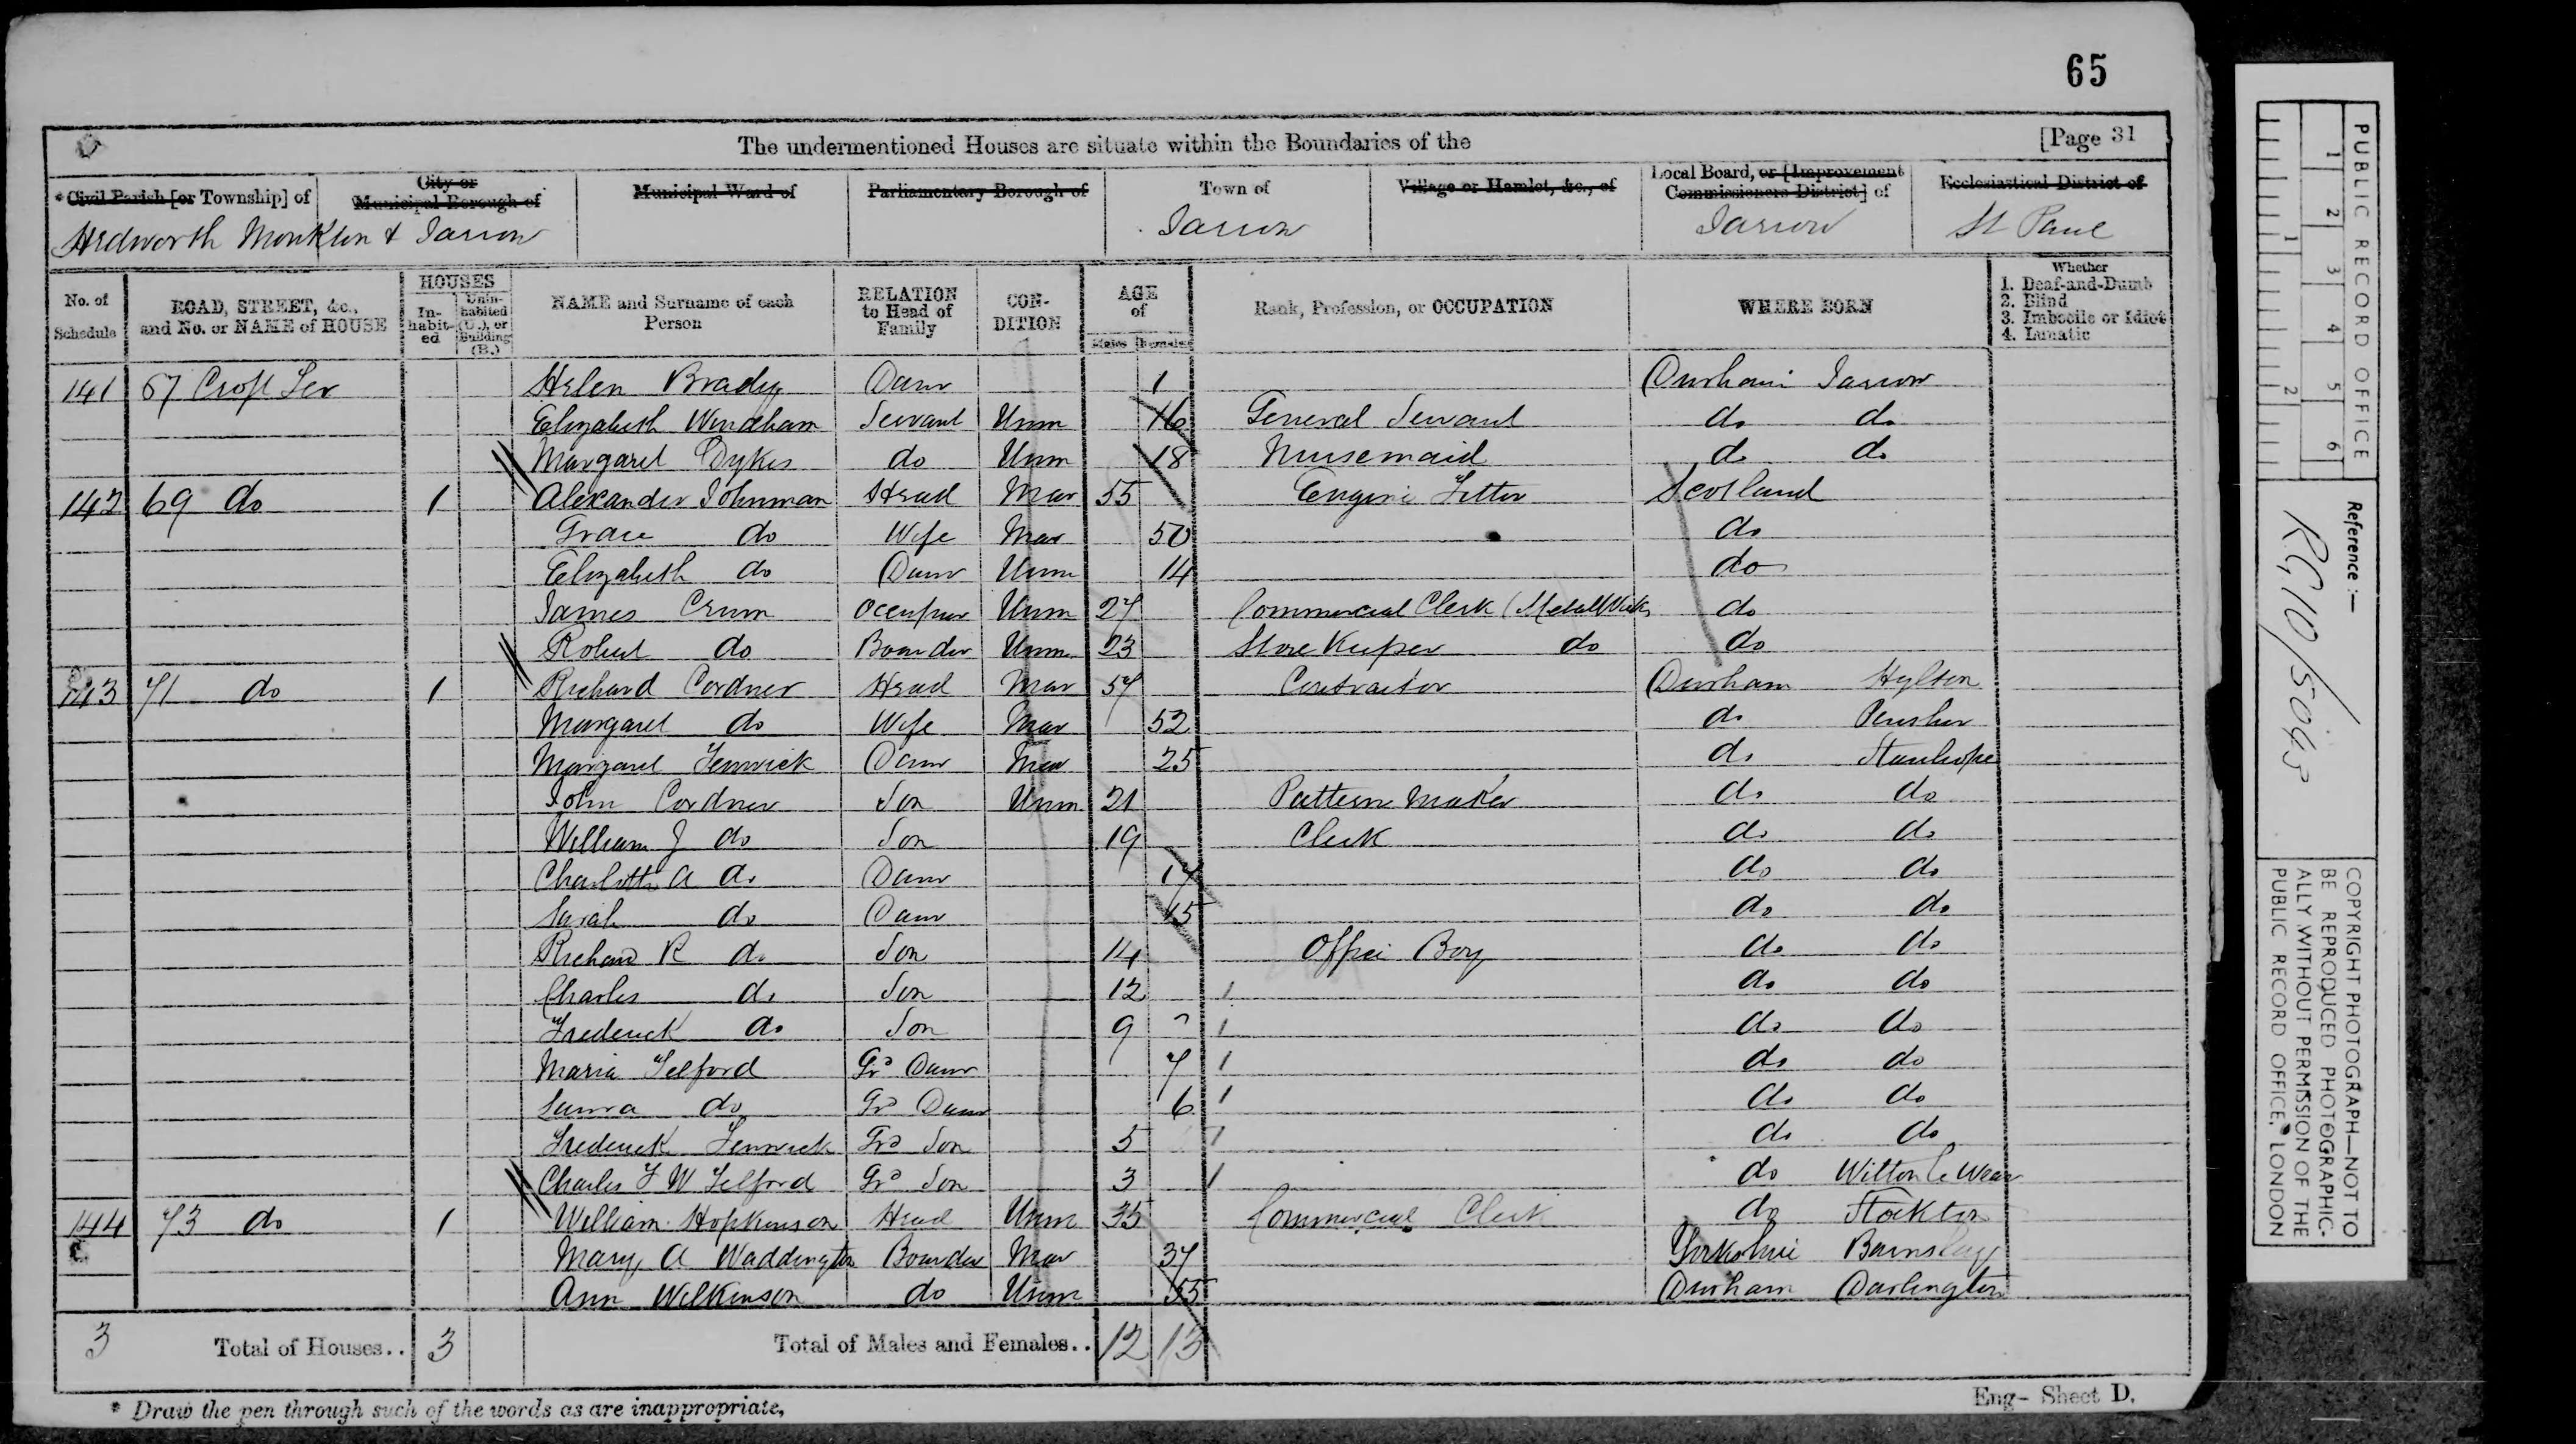 65
The undermentioned Houses are situate within the Boundaries of the [Page 31
* Civil Parish [or Township] of City or Municipal Borough of Municipal Ward of Parliamentary Borough of Town of Village or Hamlet, &c., of Local Board, or [Improvement Commissioners District] of Ecclesiastical District of
Hedworth Monkton & Jarrow Jarrow Jarrow St Paul
No. of Schedule ROAD, STREET, &c., and No. or NAME of HOUSE HOUSES In-habit-ed Unin-habited (U.), or Building (B.) NAME and Surname of each Person RELATION to Head of Family CON-DITION AGE of Males Females Rank, Profession, or OCCUPATION WHERE BORN Whether 1. Deaf-and-Dumb 2. Blind 3. Imbecile or Idiot 4. Lunatic
141 67 Croft Ter Helen Brady Daur 1 Durham Jarrow
Elizabeth Windham Servant Unm 16 General Servant do do
Margaret Dykes do Unm 18 Nursemaid do do
142 69 do 1 Alexander Johnman Head Mar 55 Engine Fitter Scotland
Grace do Wife Mar 50 do
Elizabeth do Daur Unm 14 do
James Crum Occupier Unm 27 Commercial Clerk (Metall Wks do
Robert do Boarder Unm 23 Store Keeper do do
143 71 do 1 Richard Cordner Head Mar 57 Contractor Durham Hylton
Margaret do Wife Mar 52 do Pensher
Margaret Fenwick Daur Mar 25 do Stanhope
John Cordner Son Unm 21 Pattern Maker do do
William J do Son 19 Clerk do do
Charlotte A do Daur 17 do do
Sarah do Daur 15 do do
Richard R do Son 14 Office Boy do do
Charles do Son 12 1 do do
Frederick do Son 9 1 do do
Maria Telford Grd Daur 7 1 do do
Laura do Grd Daur 6 1 do do
Frederick Fenwick Grd Son 5 1 do do
Charles F W Telford Grd Son 3 1 do Witton le Wear
144 73 do 1 William Hopkinson Head Unm 35 Commercial Clerk do Stockton
Mary A Waddington Boarder Mar 37 Yorkshire Barnsley
Ann Wilkinson do Unm 55 Durham Darlington
3 Total of Houses.. 3 Total of Males and Females.. 12 13
* Draw the pen through such of the words as are inappropriate.
Eng- Sheet D.
PUBLIC RECORD OFFICE
1 2 3 4 5 6
1 2
Reference :-
RG10/5045
COPYRIGHT PHOTOGRAPH—NOT TO
BE REPRODUCED PHOTOGRAPHIC-
ALLY WITHOUT PERMISSION OF THE
PUBLIC RECORD OFFICE, LONDON